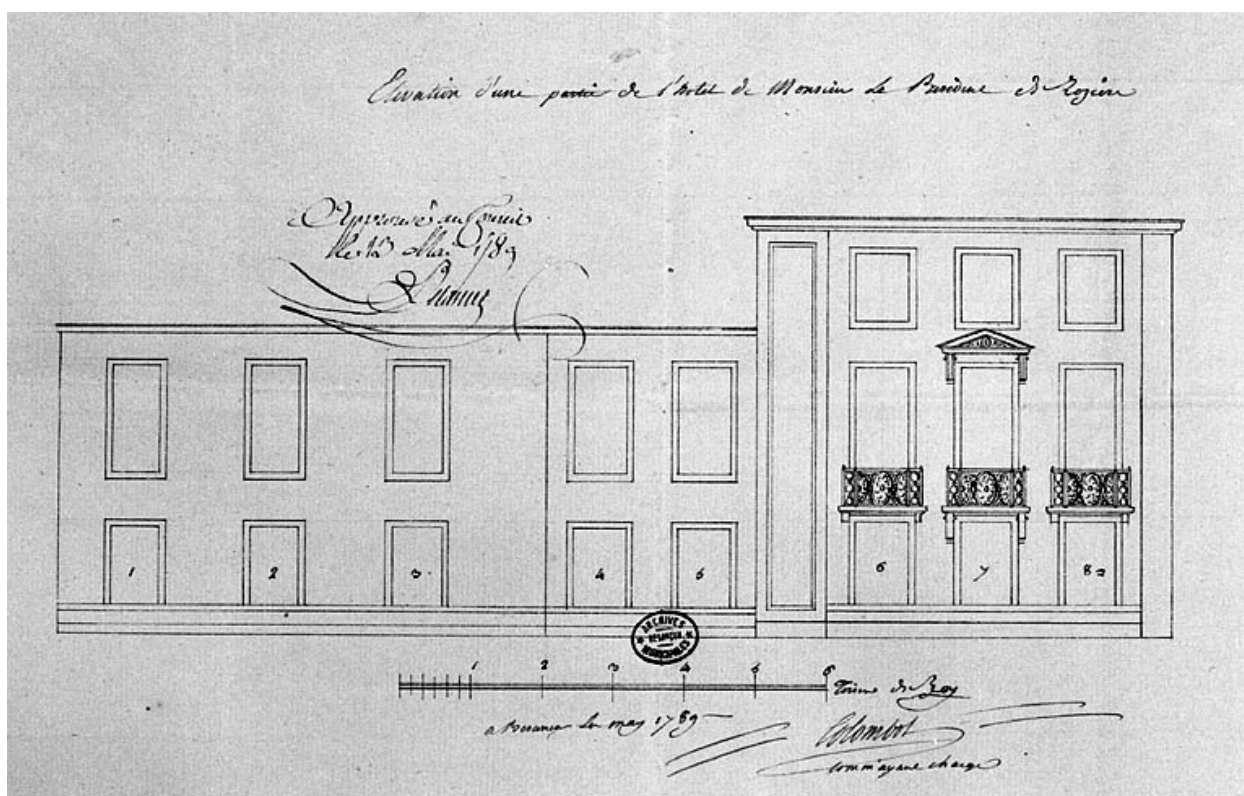 Elevation d'une partie de l'hotel de Monsieur Le Presidene de
Approuvé au Conseil
Le 12 Mai 1789
1 2 3 4 5 6 7 8
ARCHIVES
BESANÇON
MUNICIPALES
1 2 3 4 5 6
Toises de Roy
a Besancon le may 1789
Colombot
comm ayant charge